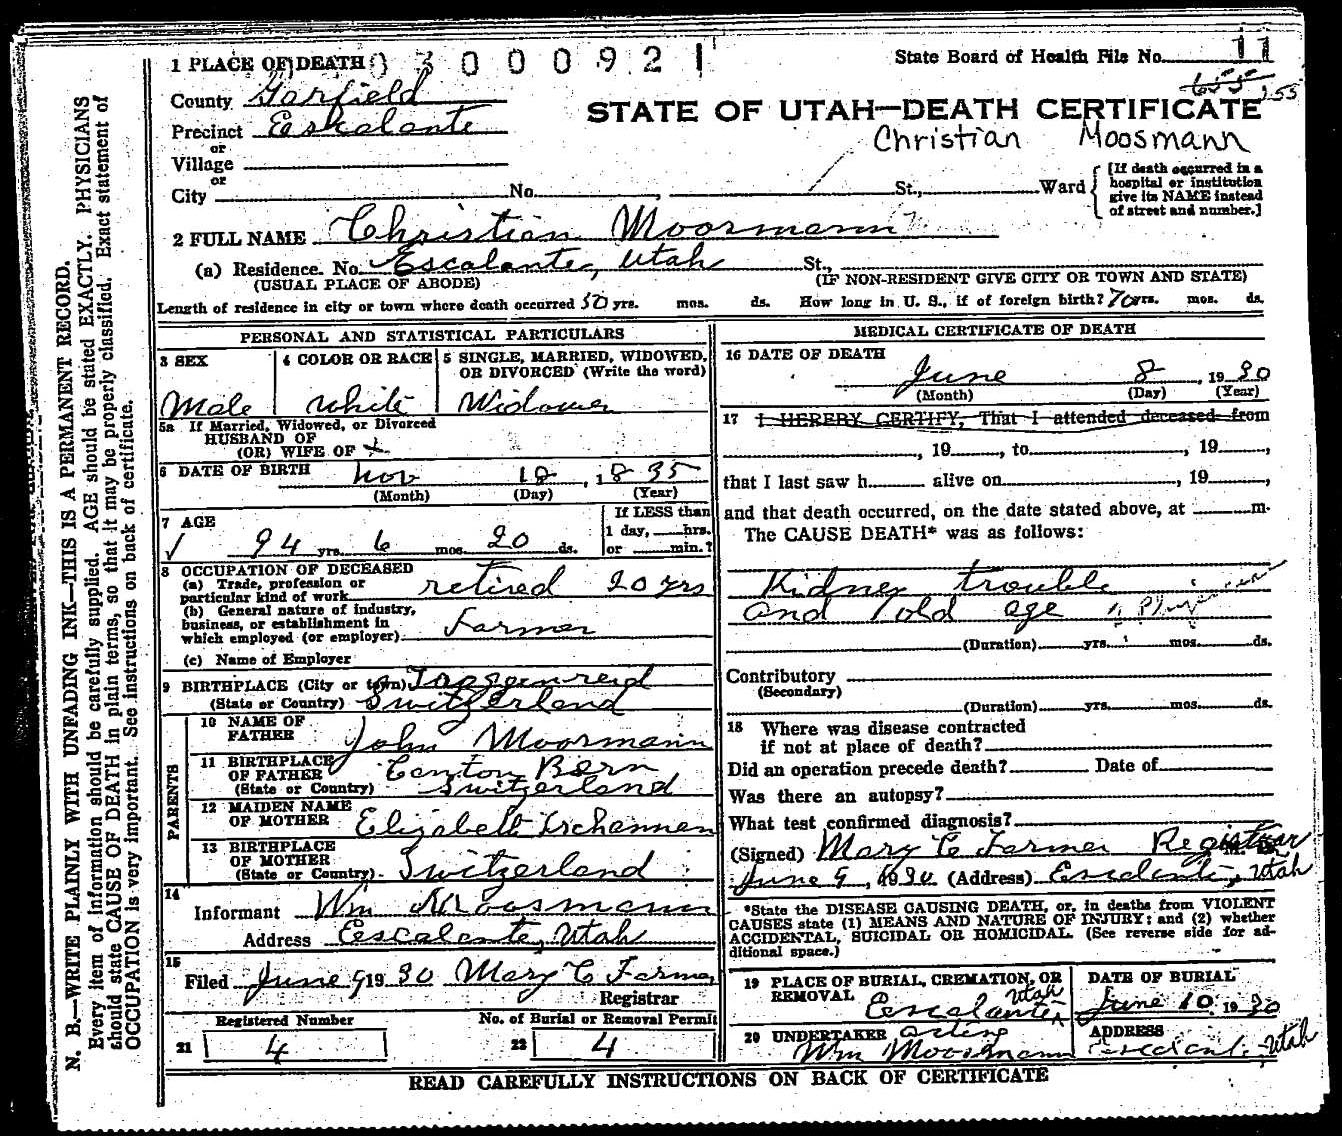 1 PLACE OF DEATH 0 3 0 0 0 9 2 1
State Board of Health File No. 11
655 155
County Garfield
STATE OF UTAH—DEATH CERTIFICATE
Precinct Escalante
Christian Moosmann
or
Village
or
City No. , St., Ward
[If death occurred in a hospital or institution give its NAME instead of street and number.]
2 FULL NAME Christian Moosmann
(a) Residence. No. Escalante, Utah St.,
(USUAL PLACE OF ABODE) (IF NON-RESIDENT GIVE CITY OR TOWN AND STATE)
Length of residence in city or town where death occurred 50 yrs. mos. ds. How long in U. S., if of foreign birth? 70 yrs. mos. ds.
PERSONAL AND STATISTICAL PARTICULARS
3 SEX
Male
4 COLOR OR RACE
White
5 SINGLE, MARRIED, WIDOWED, OR DIVORCED (Write the word)
Widower
5a If Married, Widowed, or Divorced
HUSBAND OF
(OR) WIFE OF
6 DATE OF BIRTH Nov 18, 1835
(Month) (Day) (Year)
7 AGE
94 yrs. 6 mos. 20 ds.
If LESS than
1 day, hrs.
or min.?
8 OCCUPATION OF DECEASED
(a) Trade, profession or
particular kind of work retired 20 yrs
(b) General nature of industry,
business, or establishment in
which employed (or employer) Farmer
(c) Name of Employer
9 BIRTHPLACE (City or town)
(State or Country) Switzerland
PARENTS
10 NAME OF
FATHER John Moosmann
11 BIRTHPLACE
OF FATHER Canton Bern
(State or Country) Switzerland
12 MAIDEN NAME
OF MOTHER Elizabeth
13 BIRTHPLACE
OF MOTHER
(State or Country) Switzerland
14
Informant Wm Moosmann
Address Escalante, Utah
15
Filed June 9 1930 Mary C Farmer
Registrar
Registered Number No. of Burial or Removal Permit
21 4 22 4
MEDICAL CERTIFICATE OF DEATH
16 DATE OF DEATH
June 8, 1930
(Month) (Day) (Year)
17 I HEREBY CERTIFY, That I attended deceased from
, 19 , to , 19 ,
that I last saw h alive on , 19 ,
and that death occurred, on the date stated above, at m.
The CAUSE DEATH* was as follows:
Kidney trouble
and old age
(Duration) yrs. mos. ds.
Contributory
(Secondary)
(Duration) yrs. mos. ds.
18 Where was disease contracted
if not at place of death?
Did an operation precede death? Date of
Was there an autopsy?
What test confirmed diagnosis?
(Signed) Mary C Farmer Registrar
June 9, 1930 (Address) Escalante, Utah
*State the DISEASE CAUSING DEATH, or, in deaths from VIOLENT
CAUSES state (1) MEANS AND NATURE OF INJURY: and (2) whether
ACCIDENTAL, SUICIDAL OR HOMICIDAL. (See reverse side for ad-
ditional space.)
19 PLACE OF BURIAL, CREMATION, OR
REMOVAL Escalante Utah
DATE OF BURIAL
June 10, 1930
20 UNDERTAKER acting
Wm Moosmann
ADDRESS
Escalante Utah
READ CAREFULLY INSTRUCTIONS ON BACK OF CERTIFICATE
N. B.—WRITE PLAINLY WITH UNFADING INK—THIS IS A PERMANENT RECORD.
Every item of information should be carefully supplied. AGE should be stated EXACTLY. PHYSICIANS
should state CAUSE OF DEATH in plain terms, so that it may be properly classified. Exact statement of
OCCUPATION is very important. See instructions on back of certificate.